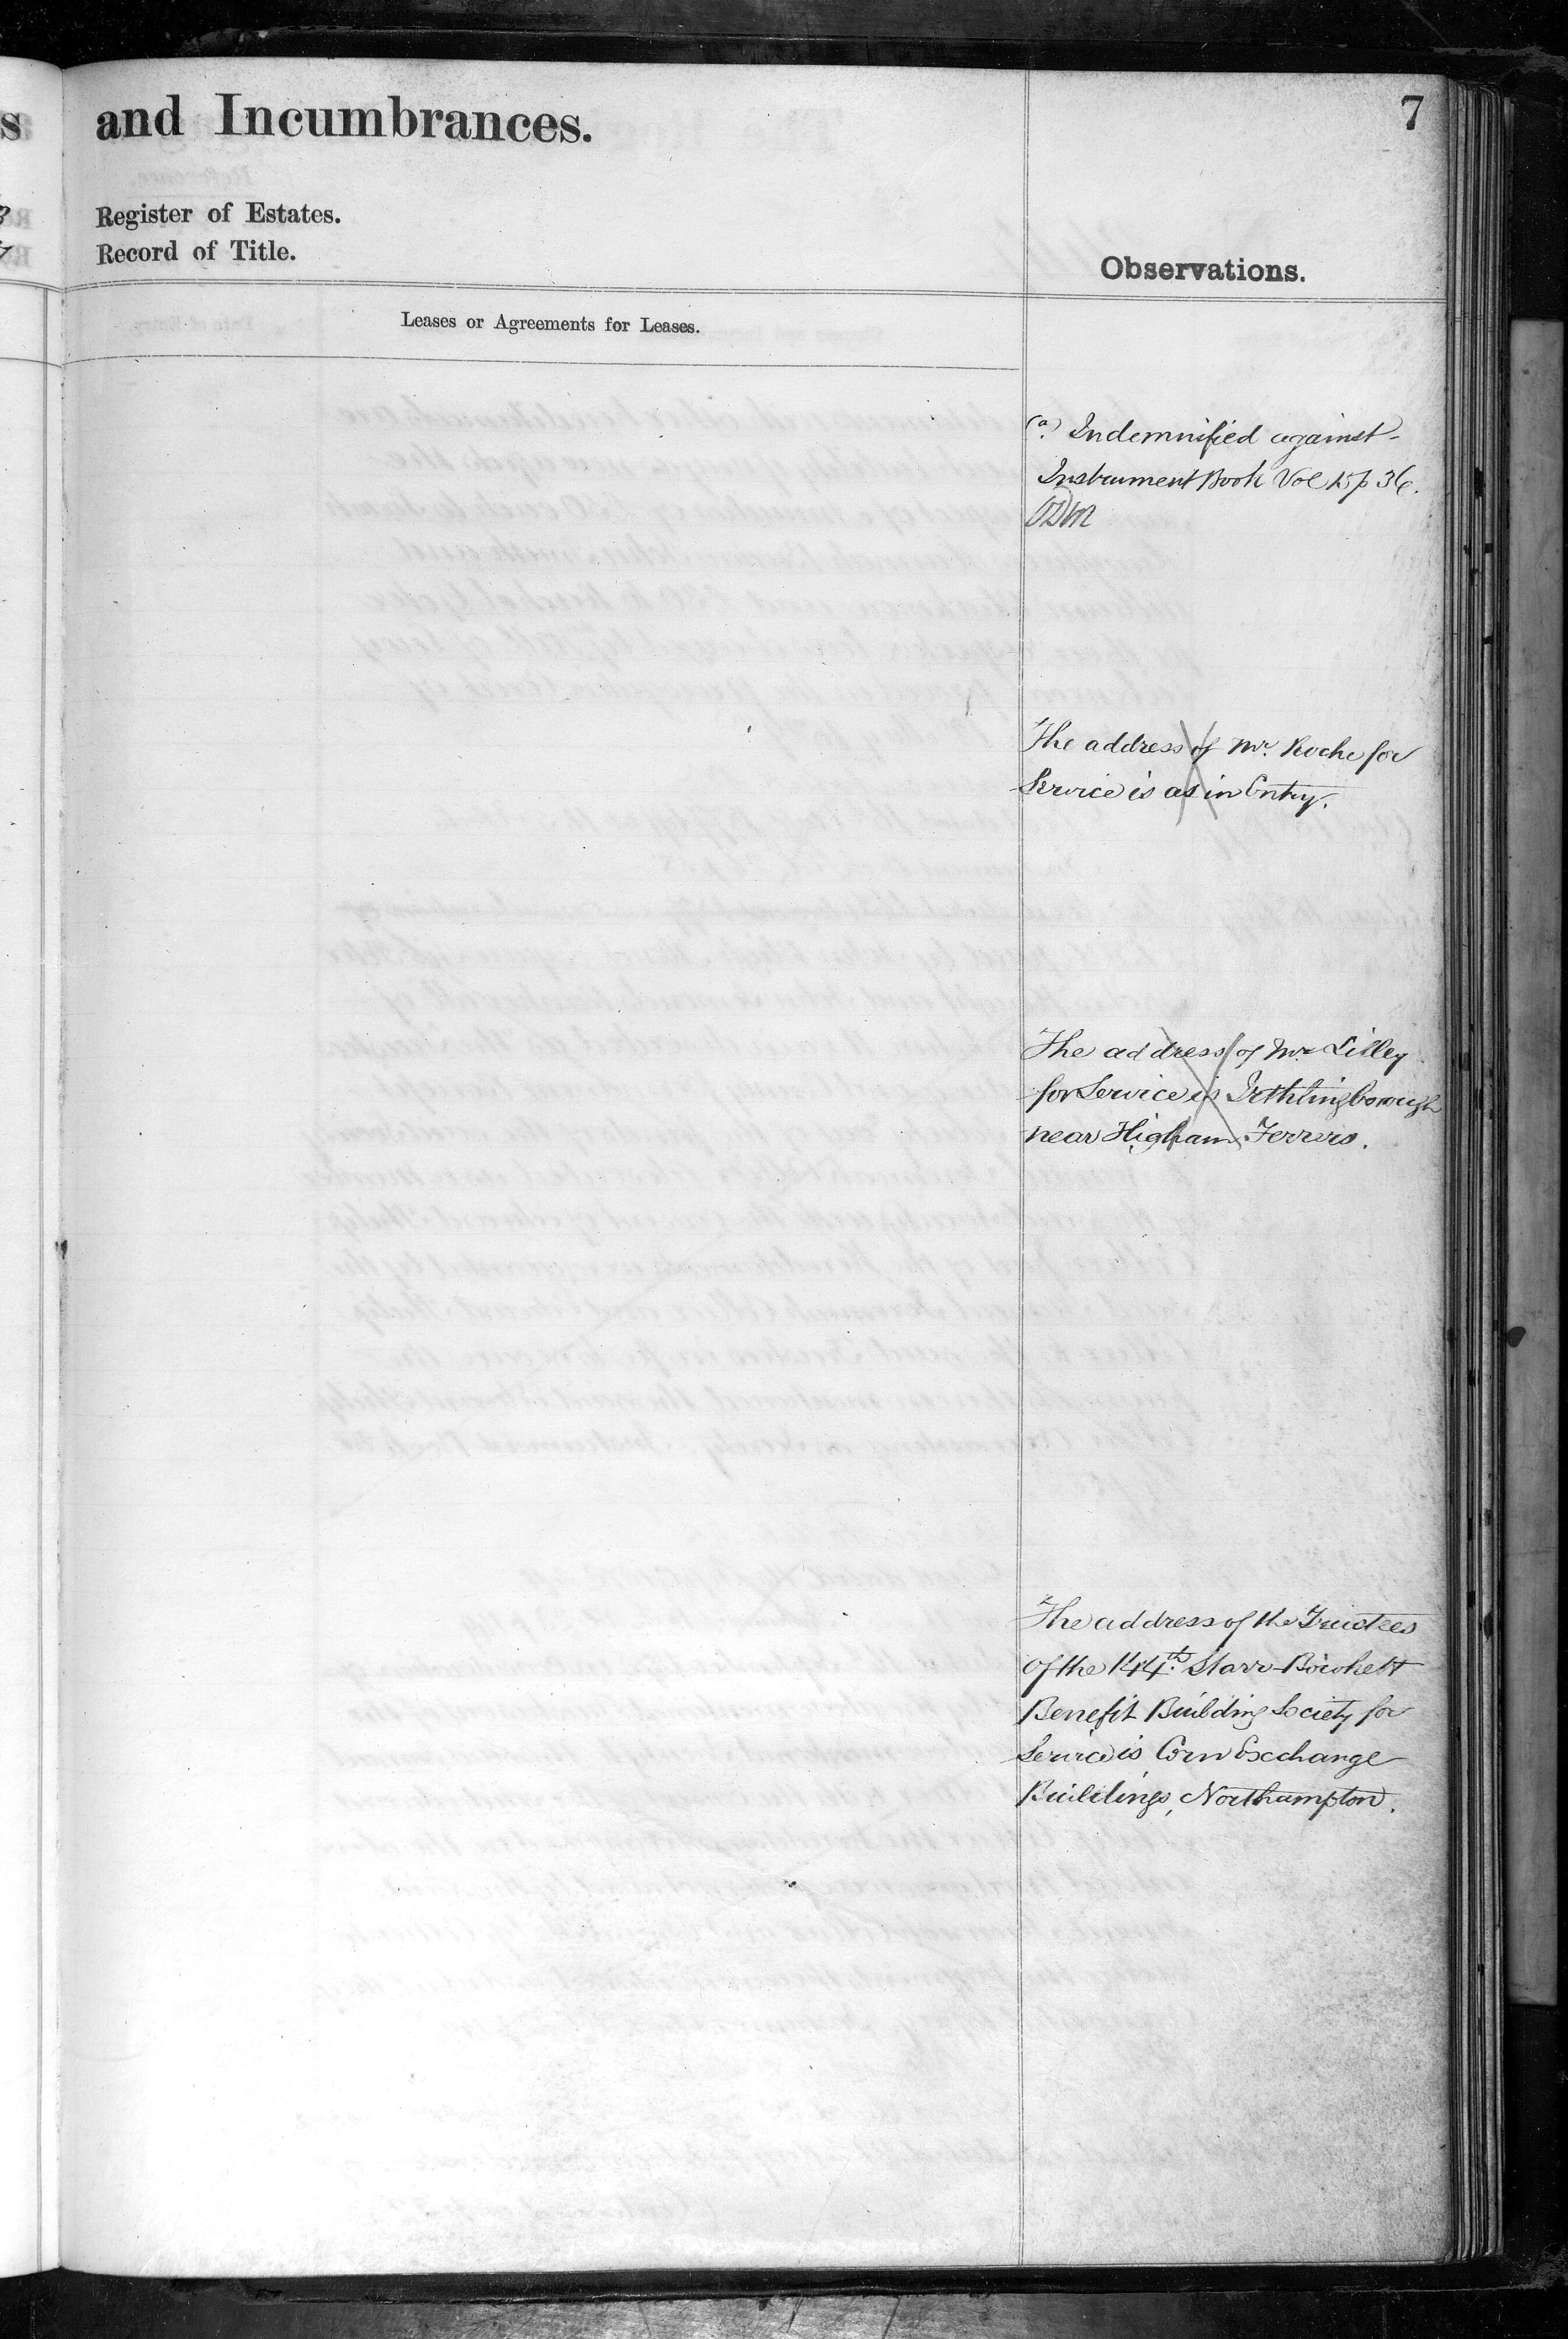 and Incumbrances.
7
Register of Estates.
Record of Title.
Observations.
Leases or Agreements for Leases.
(a.) Indemnified against
Instrument Book Vol 15 p 36.
The address of Mr. Roche for
Service is as in Entry.
The address of Mr Lilley
for Service is Irthlingborough
near Higham Ferrers.
The address of the Trustees
of the 144th. Starr-Bowkett
Benefit Building Society for
Service is Corn Exchange
Buildings, Northampton.